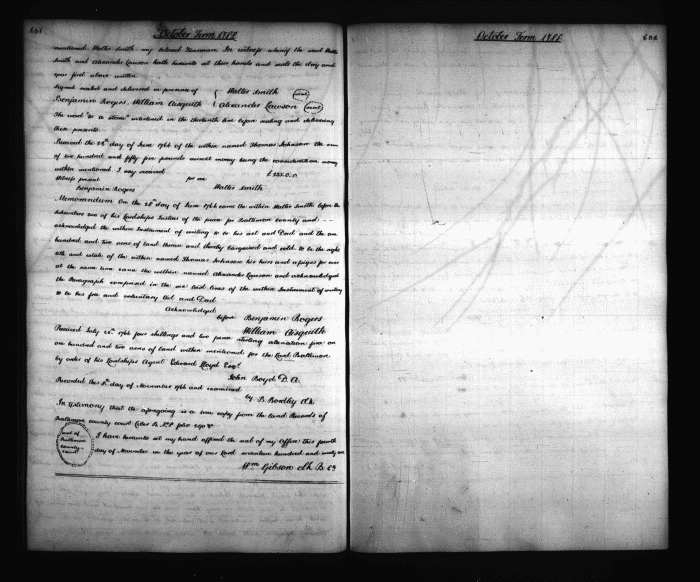 651
October Term 1788
mentioned Walter Smith my beloved Kinsman In witness whereof the said Walter
Smith and Alexander Lawson hath hereunto set their hands and seals the day and
year first above written
Signed sealed and delivered in presence of { Walter Smith (seal)
Benjamin Rogers, William Aisquith { Alexander Lawson (seal)
The word to a stone interlined in the thirteenth line before sealing and delivering
these presents.
Received the 28th day of June 1766 of the within named Thomas Johnson the sum
of five hundred and fifty five pounds current money being the consideration money
within mentioned I say received £555.0.0
Witness present per me
Benjamin Rogers Walter Smith
Memorandum On the 28th day of June 1766 came the within Walter Smith before the
subscribers two of his Lordships Justices of the peace for Baltimore County and
acknowledged the within Instrument of writing to be his act and Deed and the one
hundred and two acres of land therein and thereby bargained and sold to be the right
and estate of the within named Thomas Johnson his heirs and assigns for ever
at the same time came the within named Alexander Lawson and acknowledged
the Paragraph comprised in the six last lines of the within Instrument of writing
to be his free and voluntary Act and Deed
Acknowledged
before Benjamin Rogers
William Aisquith
Received July 24th 1766 four shillings and two pence sterling alienation fine on
one hundred and two acres of land within mentioned for the Lord Baltimore
by order of his Lordships Agent Edward Lloyd Esqr.
John Boyd D. A.
Recorded the 5th day of November 1766 and examined
by B. Bordley Clk.
In testimony that the aforegoing is a true copy from the land Records of
Baltimore county court Liber B. No P folio
seal of
Baltimore
County
Court
I have hereunto set my hand affixed the seal of my Office this fourth
day of November in the year of our Lord seventeen hundred and ninety
Wm Gibson clk B. Cy
October Term 1788
652